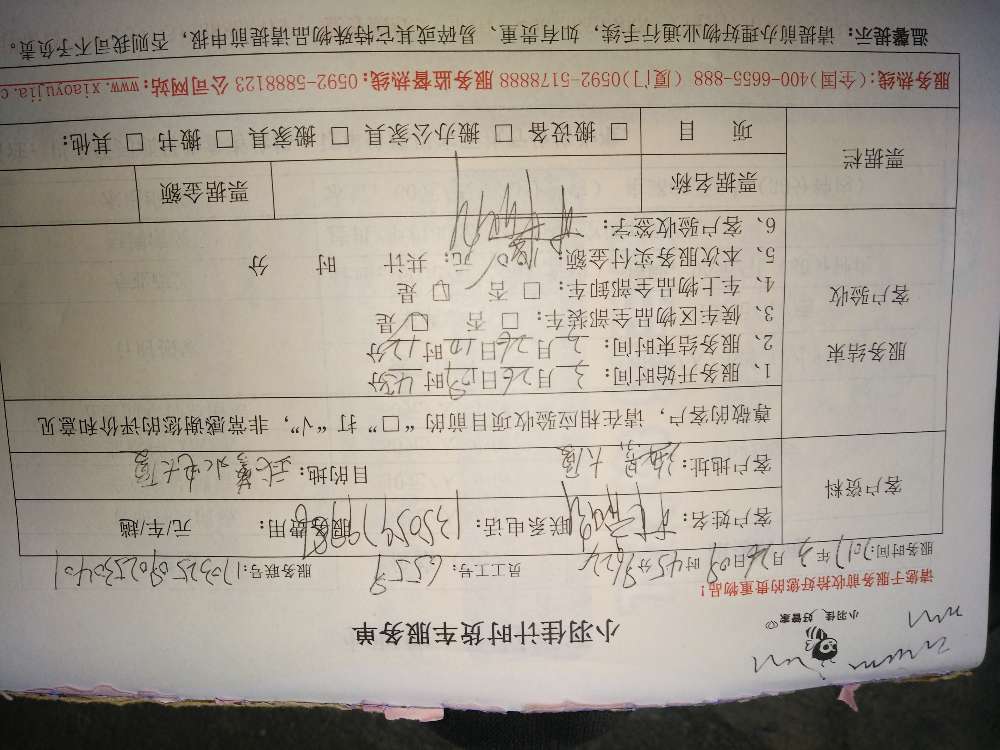 小羽佳、好管家
小羽佳计时货车服务单
请您于服务前收拾好您的贵重物品！
服务时间：2017年3月26日09时45分 员工工号：6559 服务联号：
客户资料
客户姓名： 联系电话： 服务费用： 元/车/趟
客户地址： 大厦 目的地： 水电大厦
尊敬的客户，请在相应验收项目前的“□”打“√”，非常感谢您的评价和意见
服务结束
客户验收
1、服务开始时间：3月26日09时43分
2、服务结束时间：3月26日10时12分
3、候车区物品全部装车：□ 否 □ 是
4、车上物品全部卸车：□ 否 □ 是
5、本次服务实付金额：160元；共计 时 分
6、客户验收签字：
票据栏
票据名称 票据金额
项 目 □ 搬设备 □ 搬办公家具 □ 搬家具 □ 搬书 □ 其他：
服务热线：(全国)400-6655-888 (厦门)0592-5178888 服务监督热线：0592-5888123 公司网站：www.xiaoyujia.c
温馨提示：请提前办理好物业通行手续，如有贵重、易碎或其它特殊物品请提前申报，否则我司不予负责。